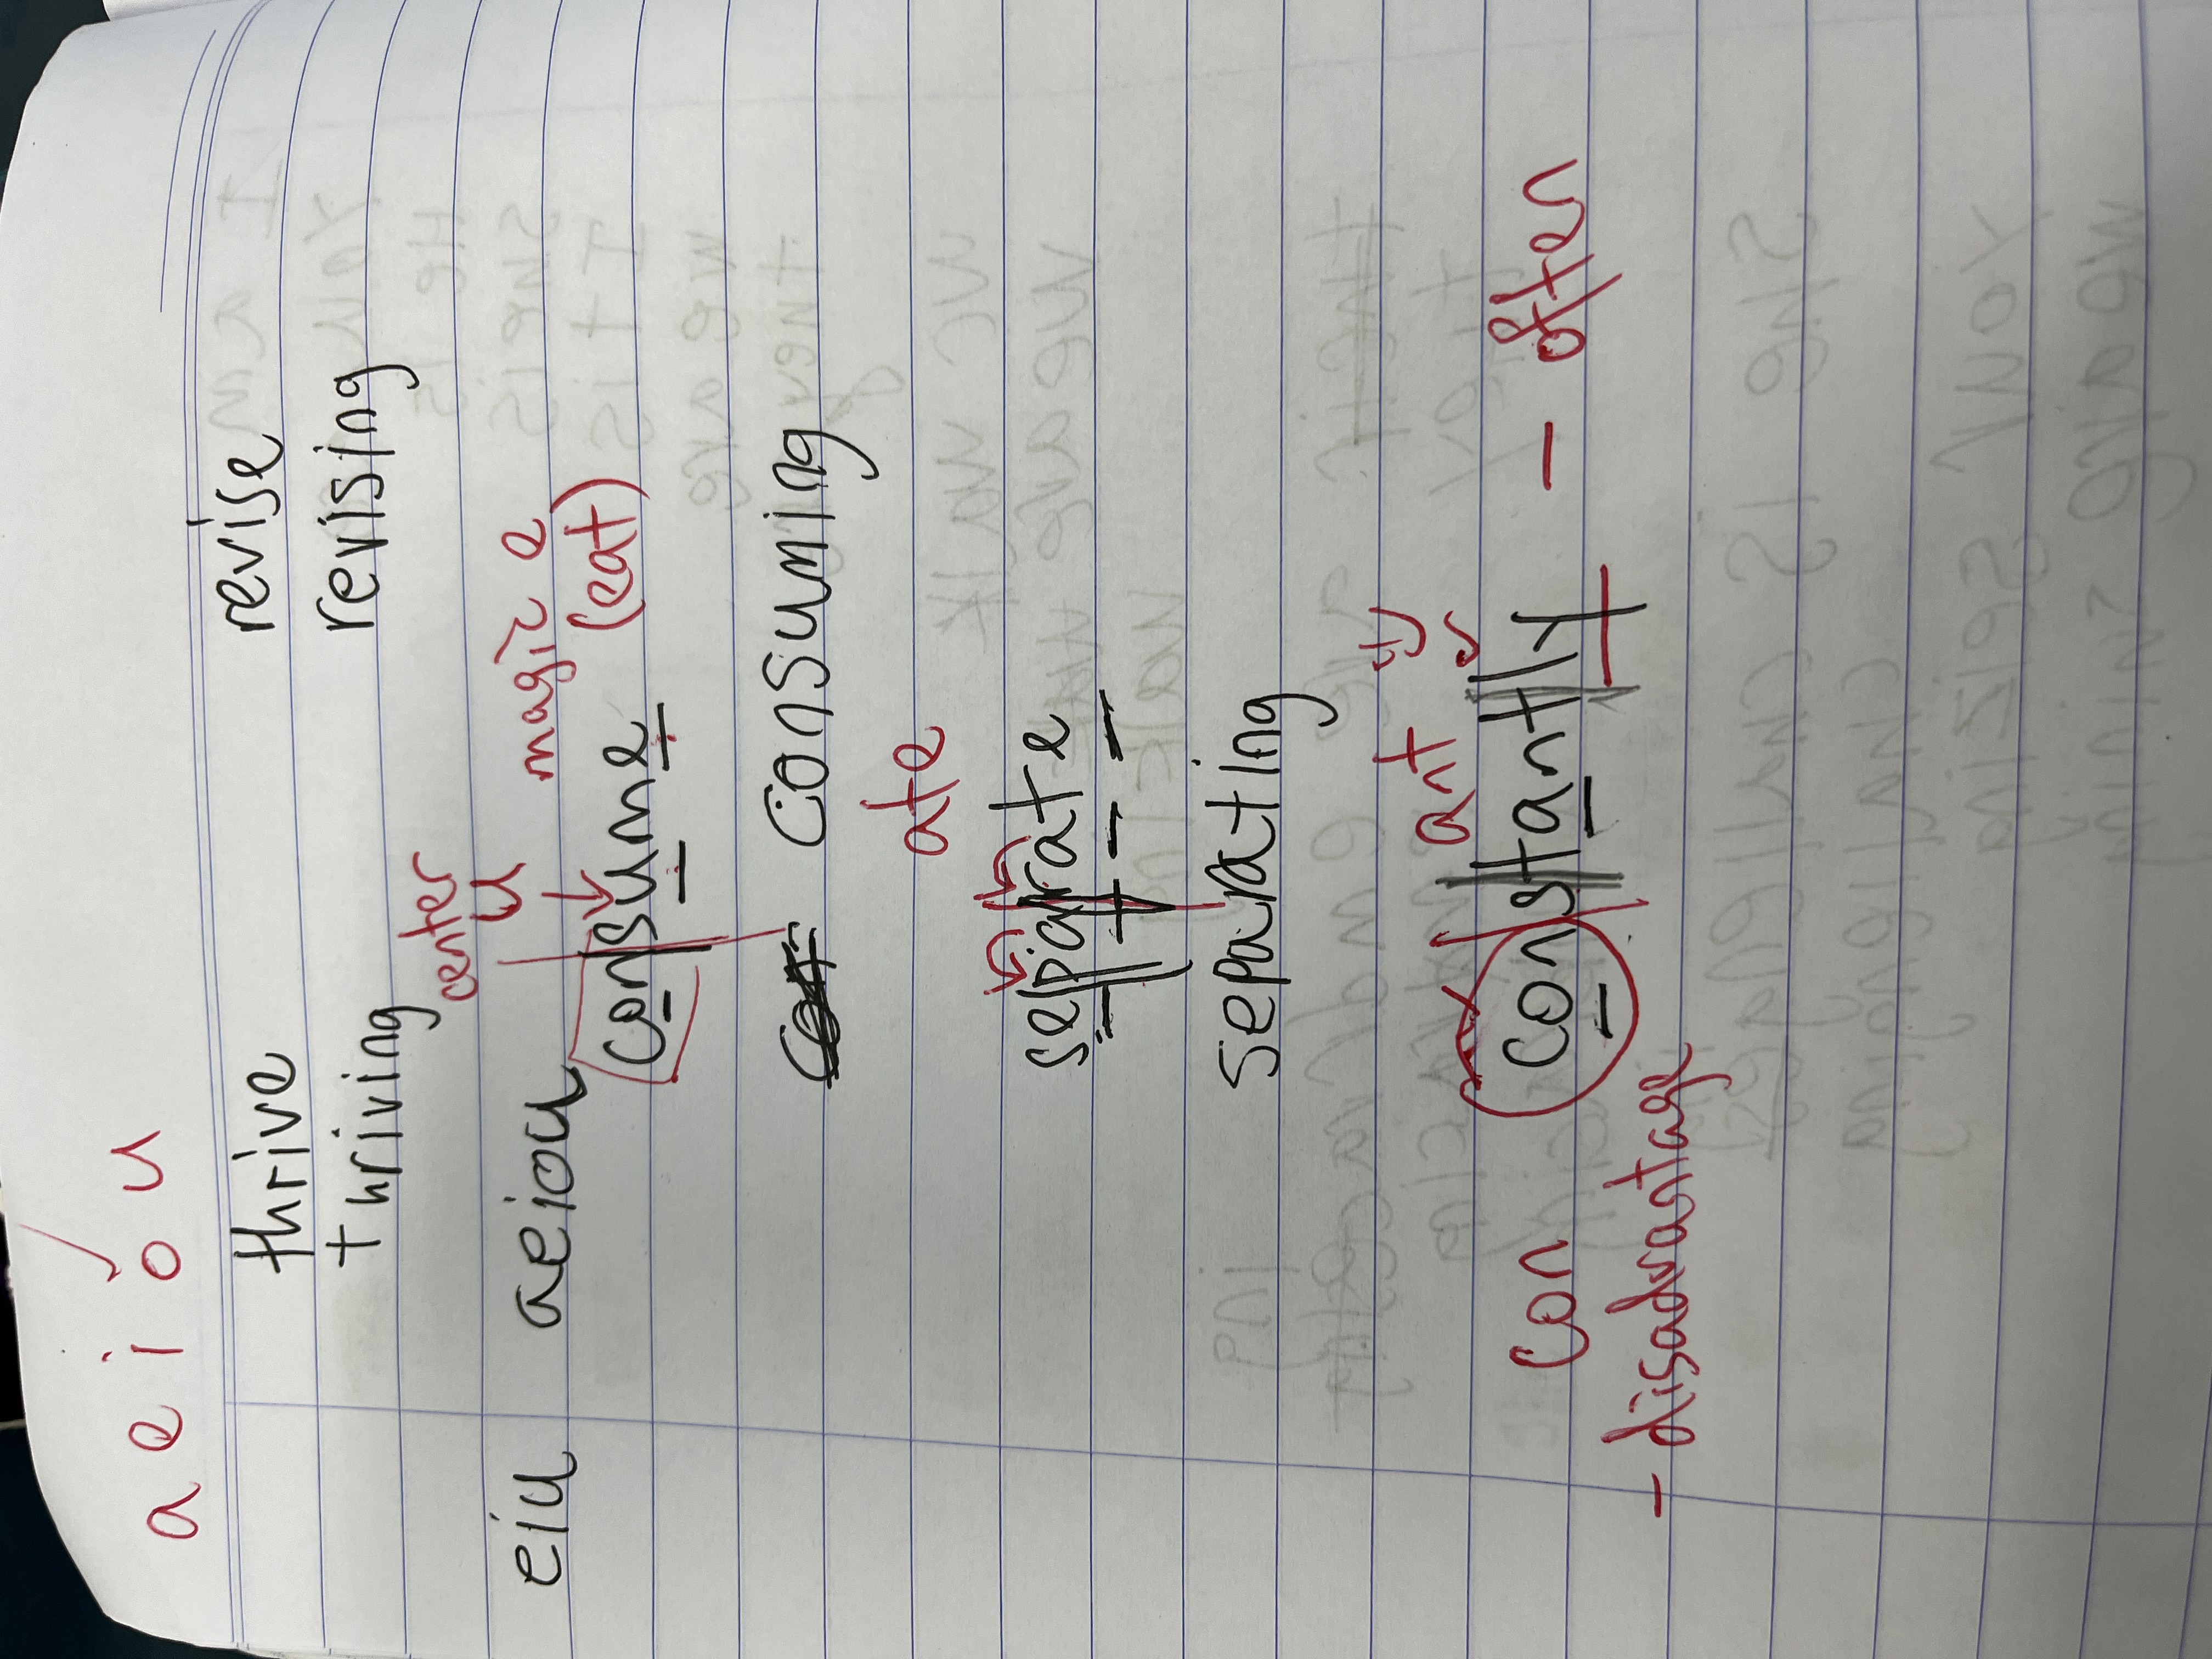 a e i o u
thrive revise
thriving revising
center
u
eiu aeiou magic e
consume (eat)
consuming
ate
separate
separating
ant y
con constantly - often
- disadvantage